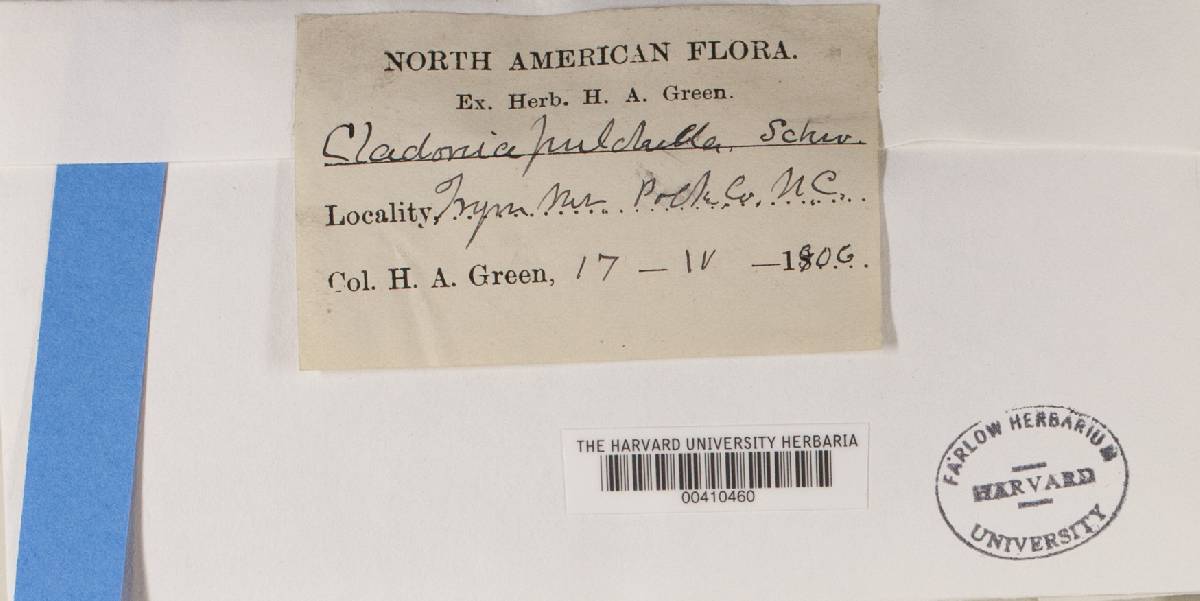 NORTH AMERICAN FLORA.
Ex. Herb. H. A. Green.
Cladonia pulchella, Schw.
Locality, Tryon Mt. Polk Co. N.C.
Col. H. A. Green, 17 – IV – 1906.
THE HARVARD UNIVERSITY HERBARIA
00410460
FARLOW HERBARIUM
HARVARD
UNIVERSITY